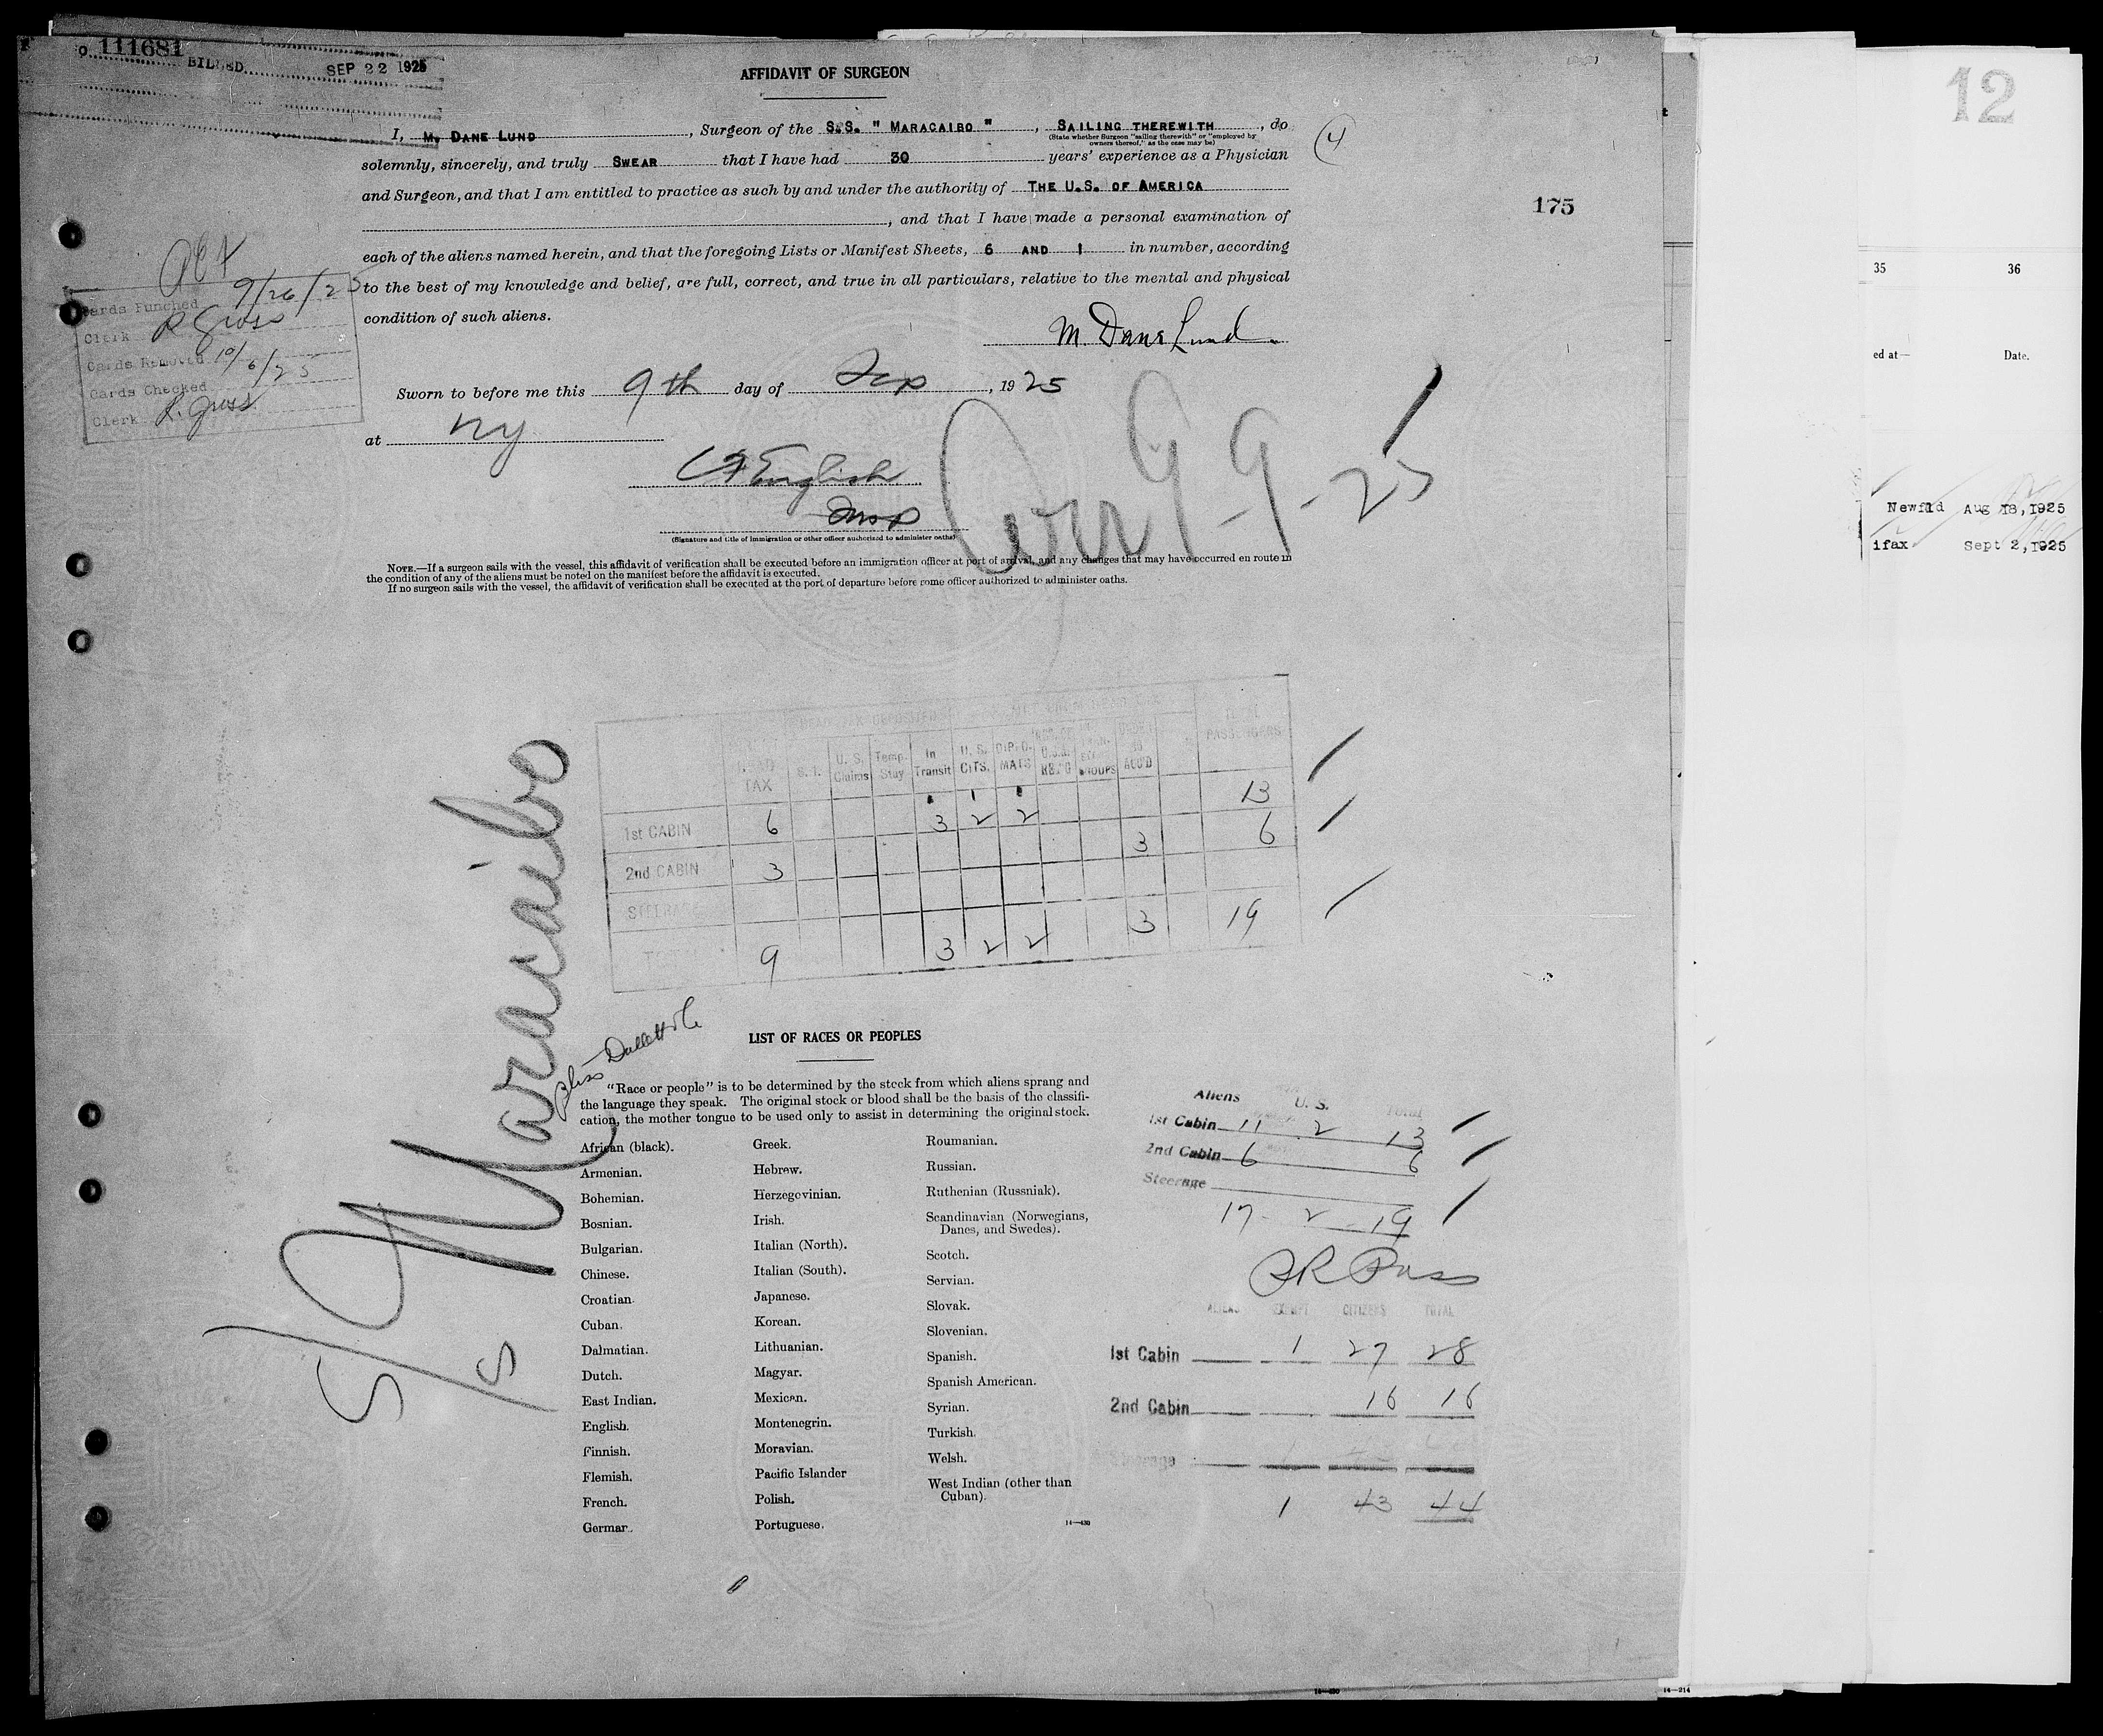 o. 111681
BILLED SEP 22 1925
AFFIDAVIT OF SURGEON
I, M. DANE LUND, Surgeon of the S.S. " MARACAIBO ", SAILING THEREWITH, do
(State whether Surgeon "sailing therewith" or "employed by
owners thereof," as the case may be)
4
solemnly, sincerely, and truly SWEAR that I have had 30 years' experience as a Physician
and Surgeon, and that I am entitled to practice as such by and under the authority of THE U.S. OF AMERICA
, and that I have made a personal examination of
each of the aliens named herein, and that the foregoing Lists or Manifest Sheets, 6 AND 1 in number, according
to the best of my knowledge and belief, are full, correct, and true in all particulars, relative to the mental and physical
condition of such aliens.
M. Dane Lund
175
Cards Punched 9/26/25
Clerk R Gross
Cards Removed 10/6/25
Cards Checked
Clerk R. Gross
Sworn to before me this 9th day of Sep, 1925
at NY
English
Insp
(Signature and title of immigration or other officer authorized to administer oaths)
Arr 9-9-25
NOTE.—If a surgeon sails with the vessel, this affidavit of verification shall be executed before an immigration officer at port of arrival, and any changes that may have occurred en route in
the condition of any of the aliens must be noted on the manifest before the affidavit is executed.
If no surgeon sails with the vessel, the affidavit of verification shall be executed at the port of departure before some officer authorized to administer oaths.
HEAD TAX
S. I.
U. S. Claims
Temp. Stay
In Transit
U. S. CITS.
DIPLO-MATS
TOTAL PASSENGERS
1st CABIN 6 3 2 2 13
2nd CABIN 3 3 6
STEERAGE
9 3 2 2 3 19
S/S Maracaibo
Bliss Dallett & Co
LIST OF RACES OR PEOPLES
"Race or people" is to be determined by the stock from which aliens sprang and
the language they speak. The original stock or blood shall be the basis of the classifi-
cation, the mother tongue to be used only to assist in determining the original stock.
African (black).
Armenian.
Bohemian.
Bosnian.
Bulgarian.
Chinese.
Croatian.
Cuban.
Dalmatian.
Dutch.
East Indian.
English.
Finnish.
Flemish.
French.
German.
Greek.
Hebrew.
Herzegovinian.
Irish.
Italian (North).
Italian (South).
Japanese.
Korean.
Lithuanian.
Magyar.
Mexican.
Montenegrin.
Moravian.
Pacific Islander
Polish.
Portuguese.
Roumanian.
Russian.
Ruthenian (Russniak).
Scandinavian (Norwegians,
Danes, and Swedes).
Scotch.
Servian.
Slovak.
Slovenian.
Spanish.
Spanish American.
Syrian.
Turkish.
Welsh.
West Indian (other than
Cuban).
14—430
Aliens U. S. Total
1st Cabin 11 2 13
2nd Cabin 6 6
Steerage
17 - 2 - 19
ALIENS EXEMPT CITIZENS TOTAL
1st Cabin 1 27 28
2nd Cabin 16 16
Steerage
1 43 44
14—214
12
35 36
ed at— Date.
Newfld Aug 18, 1925
ifax Sept 2, 1925